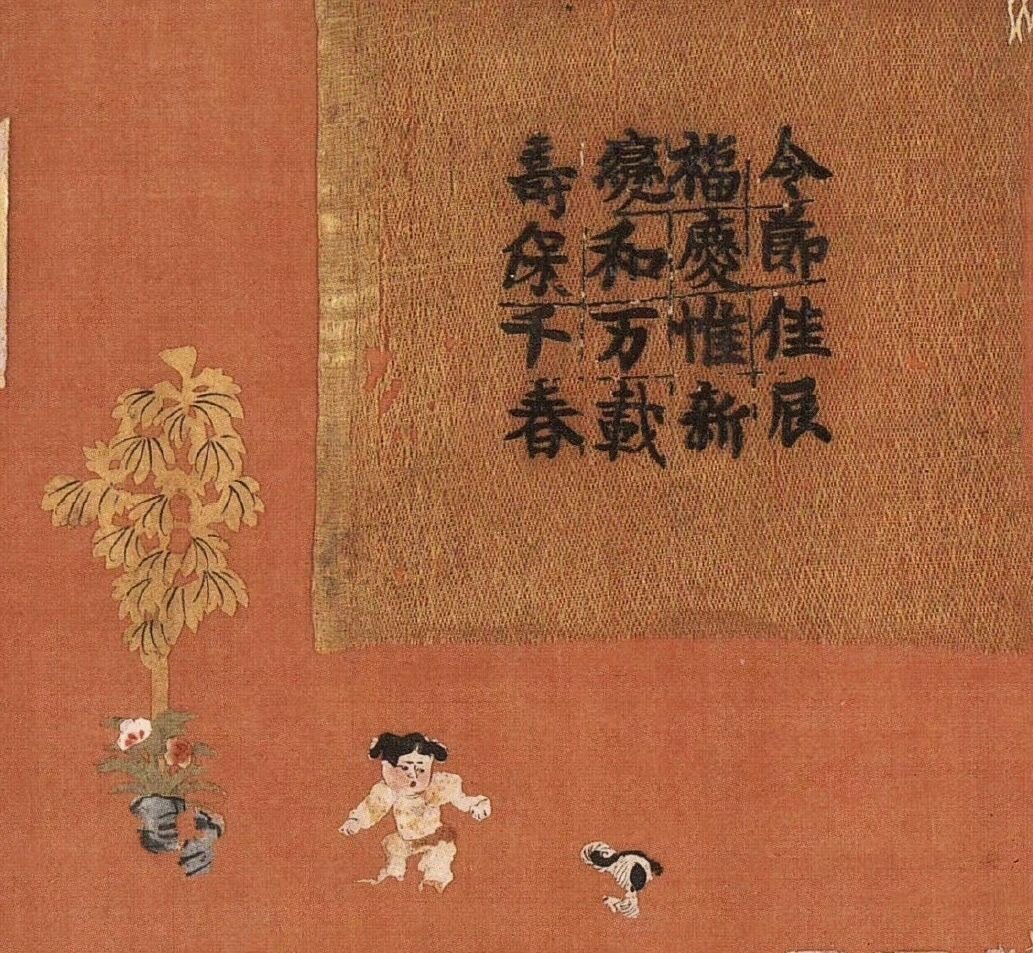 令節佳辰
福慶惟新
燮和万載
壽保千春